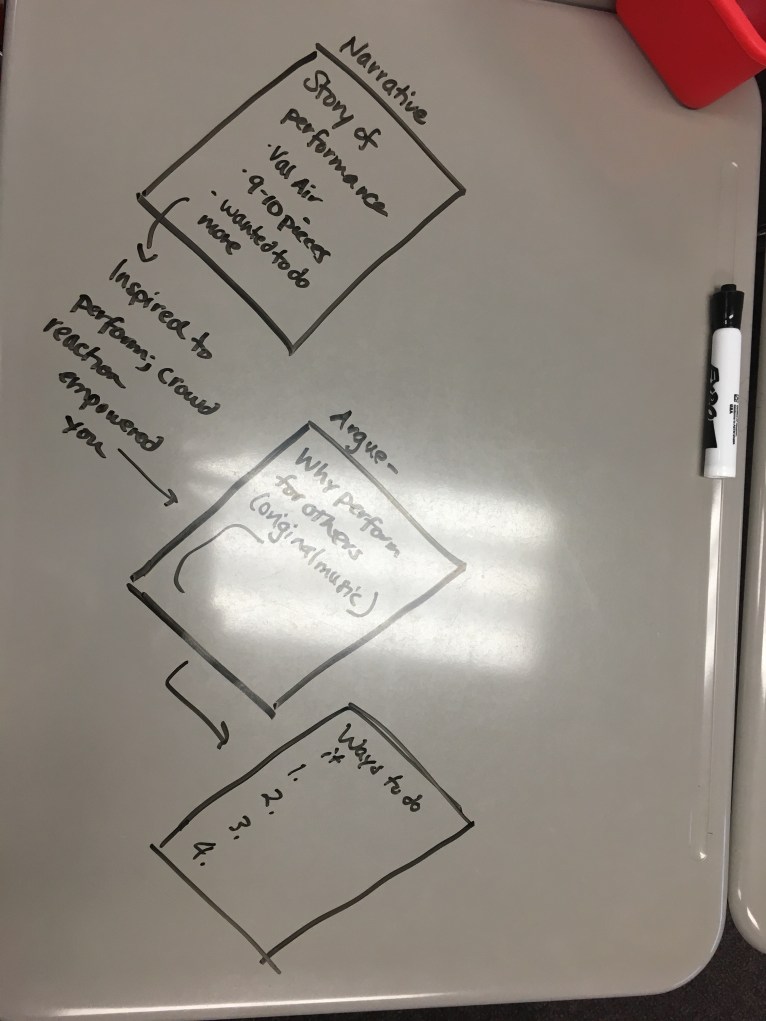 Narrative
Story of
performance
· Val Air
· 9-10 pieces
· wanted to do
more
Inspired to
perform; crowd
reaction
empowered
you
Argue-
Why perform
for others
(original music)
Ways to do
it
1.
2.
3.
4.
EXPO